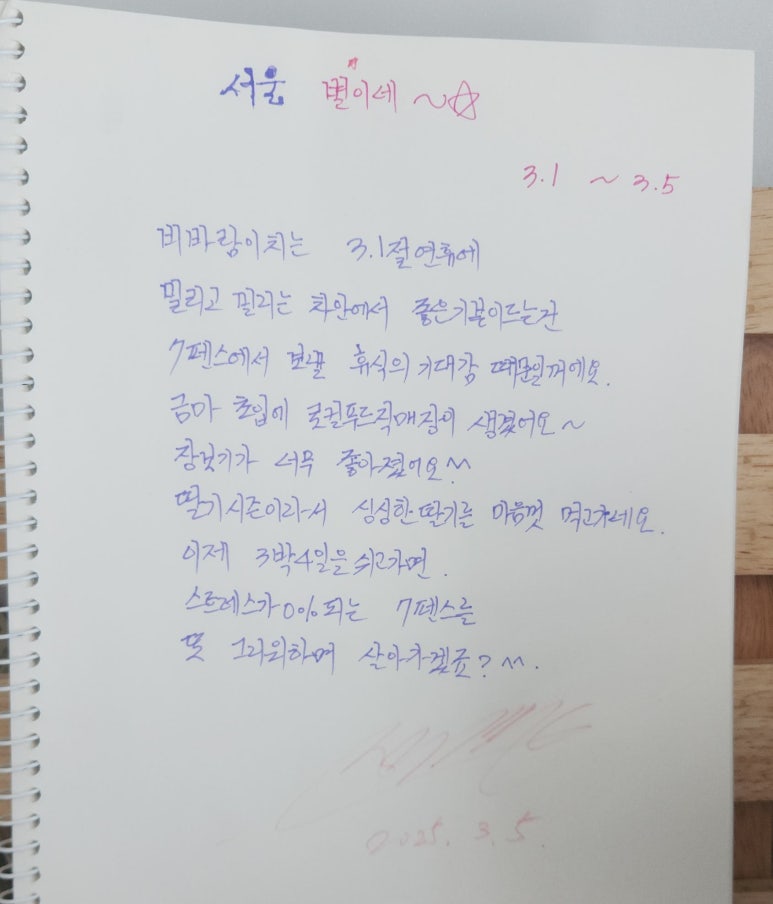 서울 별이네 ~☆
3.1 ~ 3.5
비바람이치는 3.1절연휴에
밀리고 밀리는 차안에서 좋은기분이드는건
7펜스에서 보낼 휴식의 기대감 때문일꺼에요.
금마 초입에 로컬푸드직매장이 생겼어요~
장보기가 너무 좋아졌어요^^
딸기시즌이라서 싱싱한 딸기를 마음껏 먹고가네요.
이제 3박4일을 쉬고가면.
스트레스가 0%되는 7펜스를
또 그리워하며 살아가겠죠? ^^.
2025. 3. 5.